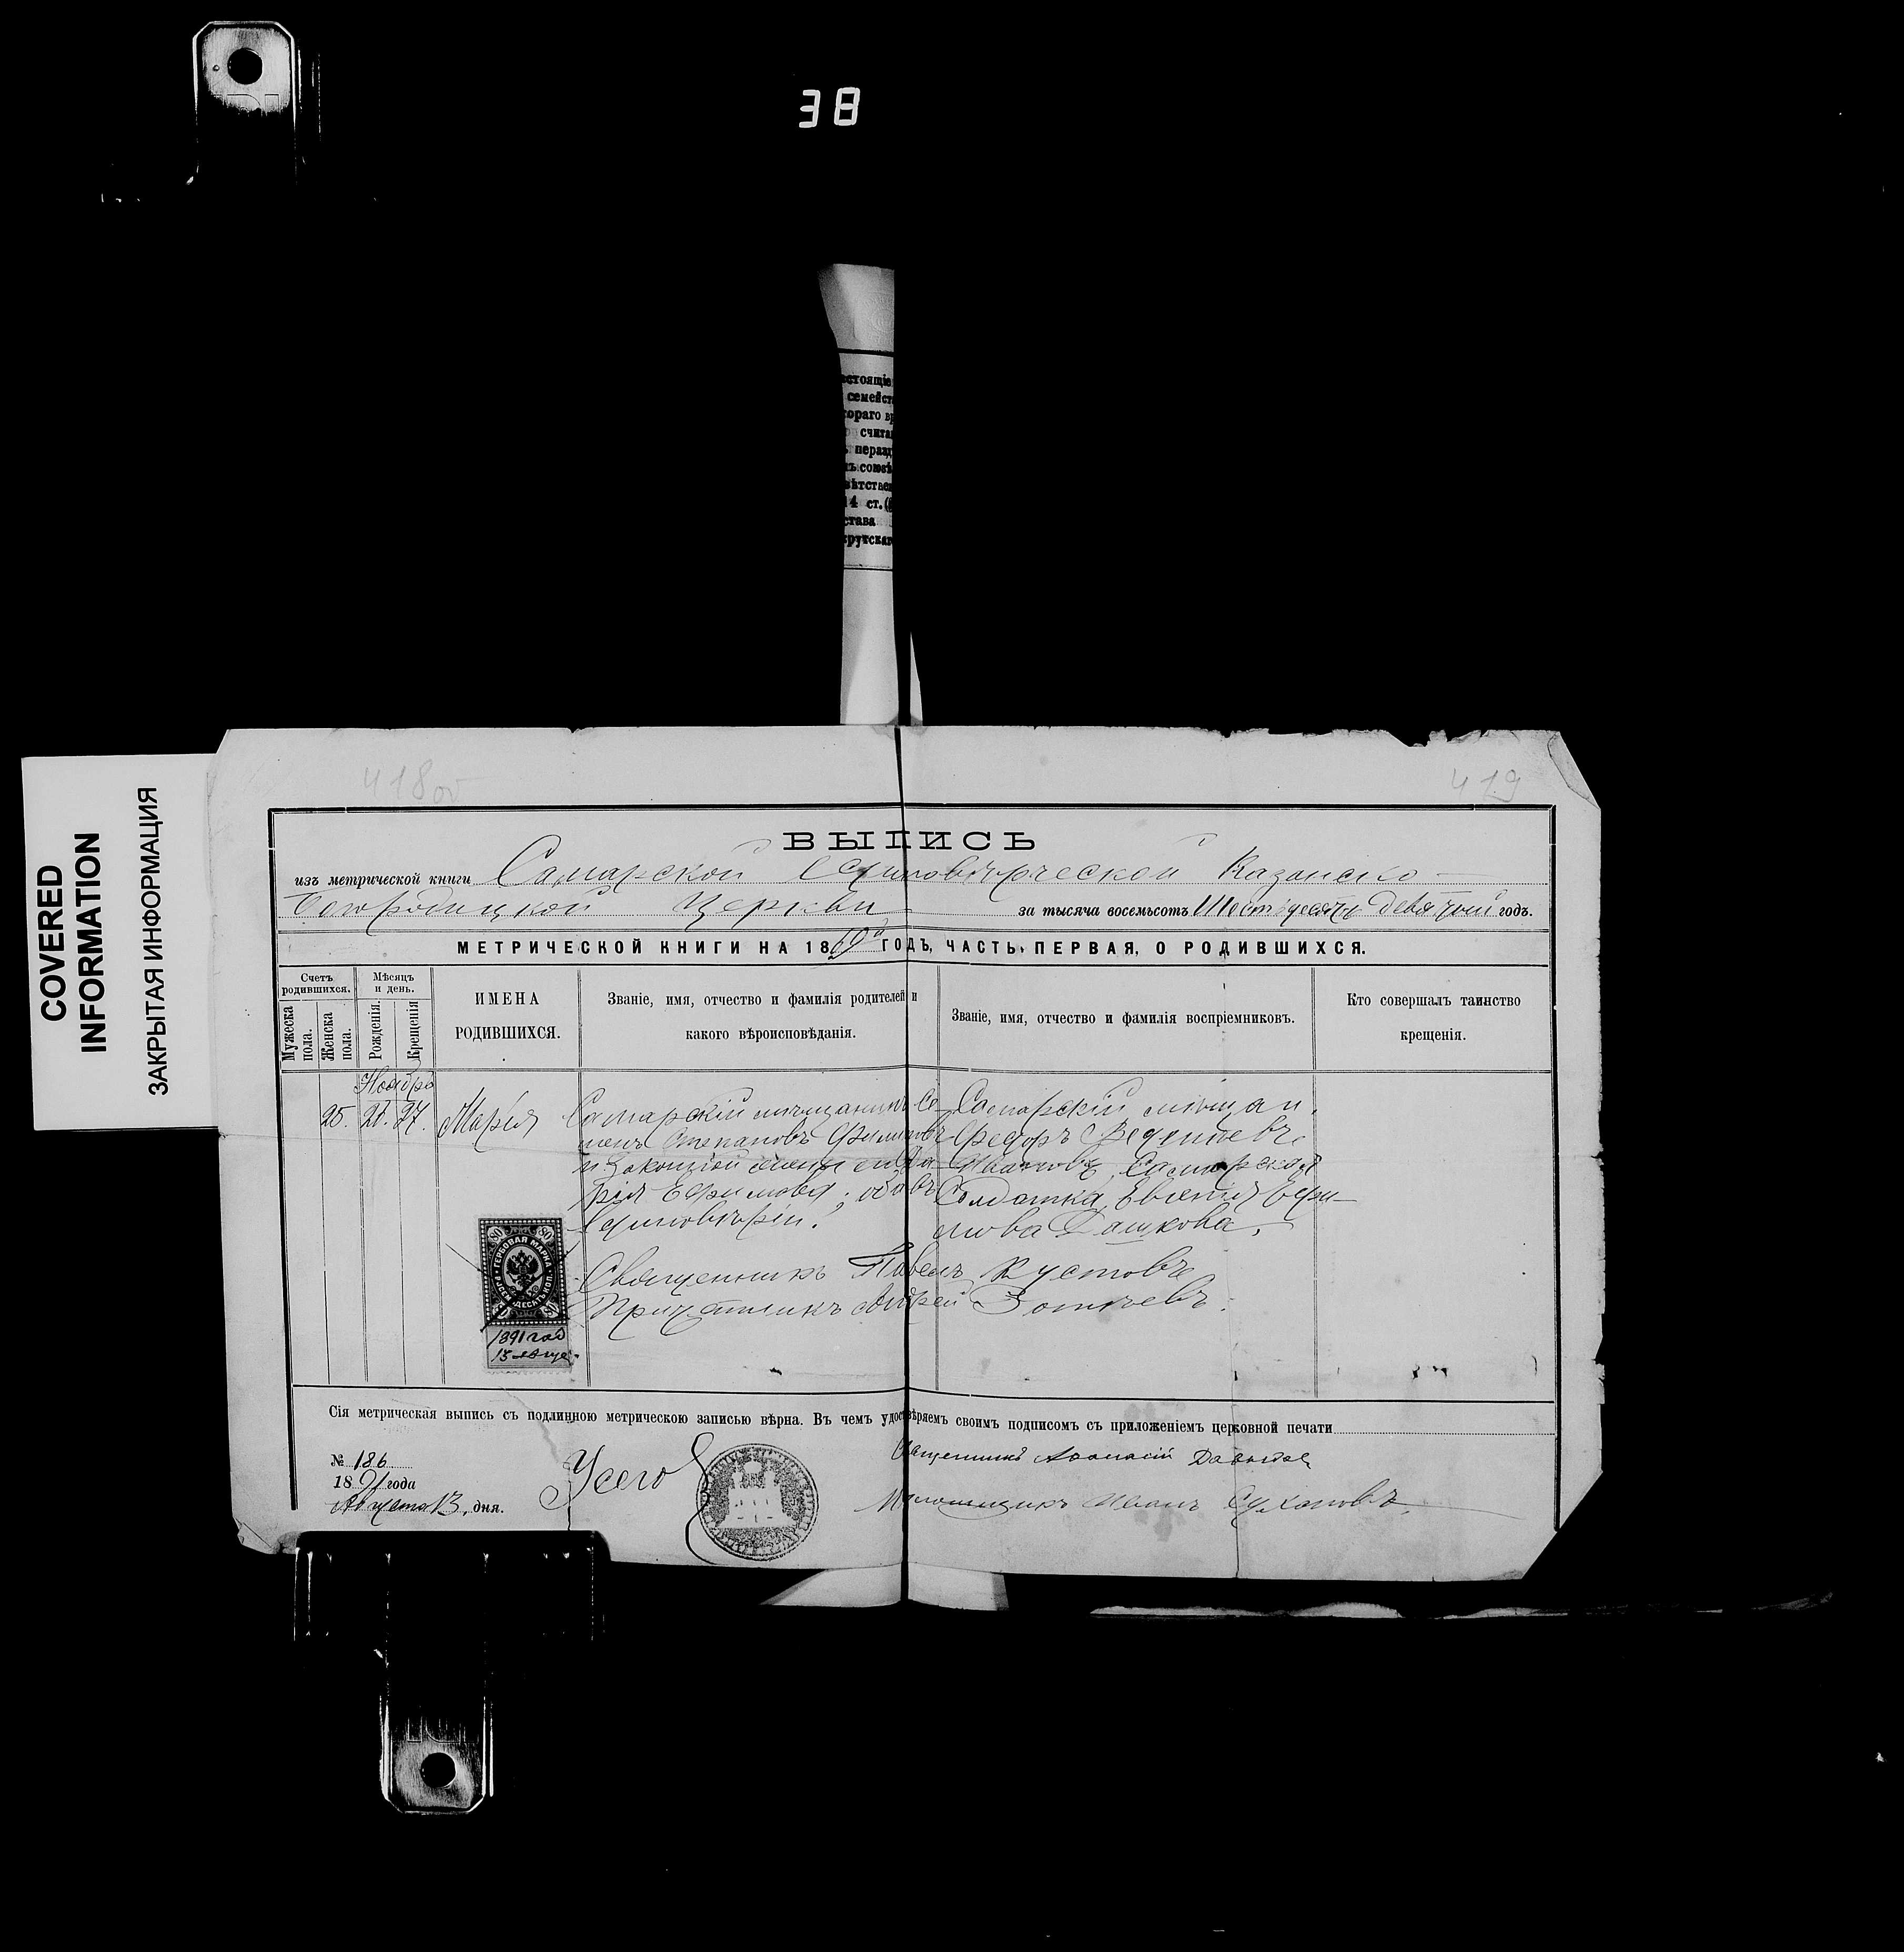 38
стоящіе
семейст
тораго вр
считa
неразд
союз
вѣтстве
14 ст.
става
крутскаг
COVERED
INFORMATION
ЗАКРЫТАЯ ИНФОРМАЦИЯ
418об
419
ВЫПИСЬ
изъ метрической книги Самарской Единовѣрческой Казанско-
Богородицкой Церкви за тысяча восемьсотъ Шестьдесятъ девятый годъ.
МЕТРИЧЕСКОЙ КНИГИ НА 1869й ГОДЪ, ЧАСТЬ ПЕРВАЯ, О РОДИВШИХСЯ.
Счетъ родившихся.
Мужеска пола.
Женска пола.
Мѣсяцъ и день.
Рожденія.
Крещенія
ИМЕНА
РОДИВШИХСЯ.
Званіе, имя, отчество и фамилія родителей и
какого вѣроисповѣданія.
Званіе, имя, отчество и фамилія воспріемниковъ.
Кто совершалъ таинство
крещенія.
Ноябрь
25. 21. 27. Марія
Самарскій мѣщанинъ Се-
менъ Степановъ Филиповъ
и законная жена его Да-
рія Ефимова; оба въ
Единовѣріи.
Самарскій мѣщан.
Федоръ
Ивановъ, Самарская
Солдатка Ефи-
мова Дашкова.
Священникъ Павелъ Кустовъ
Причетникъ Андрей
ГЕРБОВАЯ МАРКА
ВОСЕМЬДЕСЯТЪ КОП.
80 80
80 80
1891 год
13 авгу.
Сія метрическая выпись съ подлинною метрическою записью вѣрна. Въ чемъ удостовѣряемъ своимъ подписомъ съ приложеніемъ церковной печати
№ 186
1891 года
Августа 13, дня.
Священникъ Афанасій Давыдов
Иванъ Сухановъ.